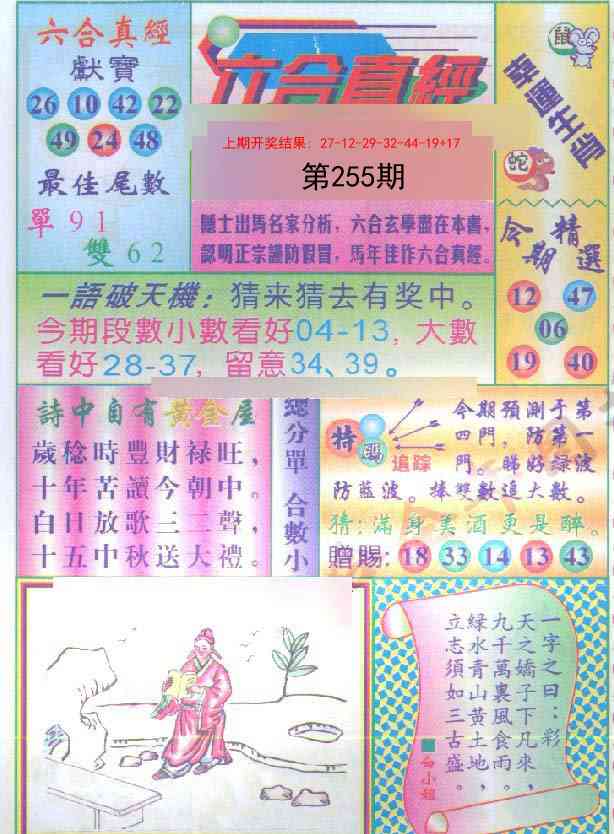 六合真經
獻寶
26 10 42 22
49 24 48
最佳尾數
單91
雙62
六合真經
上期开奖结果：27-12-29-32-44-19+17
第255期
隱士出馬名家分析，六合玄學盡在本書，
認明正宗謹防假冒，馬年佳作六合真經。
鼠
幸運生肖
蛇
今期精選
12 47
06
19 40
一語破天機：猜来猜去有奖中。
今期段數小數看好04-13，大數
看好28-37，留意34、39。
詩中自有黃金屋
歲稔時豐財禄旺，
十年苦讀今朝中。
白日放歌三二聲，
十五中秋送大禮。
總分單 合數小
特碼
追踪
今期預測于第
四門，防第一
門。睇好绿波
防藍波。捧雙數追大數。
猜：滿身美酒更是醉。
贈賜：18 33 14 13 43
一字之曰：彩
天之嬌子下凡來，
九千萬裏風食雨，
緑水青山黃土地，
立志須如三古盛。
白小姐